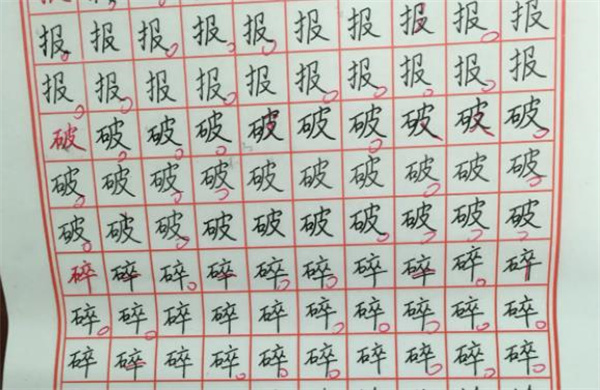 报报报报报报报报报报
报报报报报报报报报报
破破破破破破破破破破
破破破破破破破破破破
破破破破破破破破破破
碎碎碎碎碎碎碎碎碎碎
碎碎碎碎碎碎碎碎碎碎
碎碎碎碎碎碎碎碎碎碎